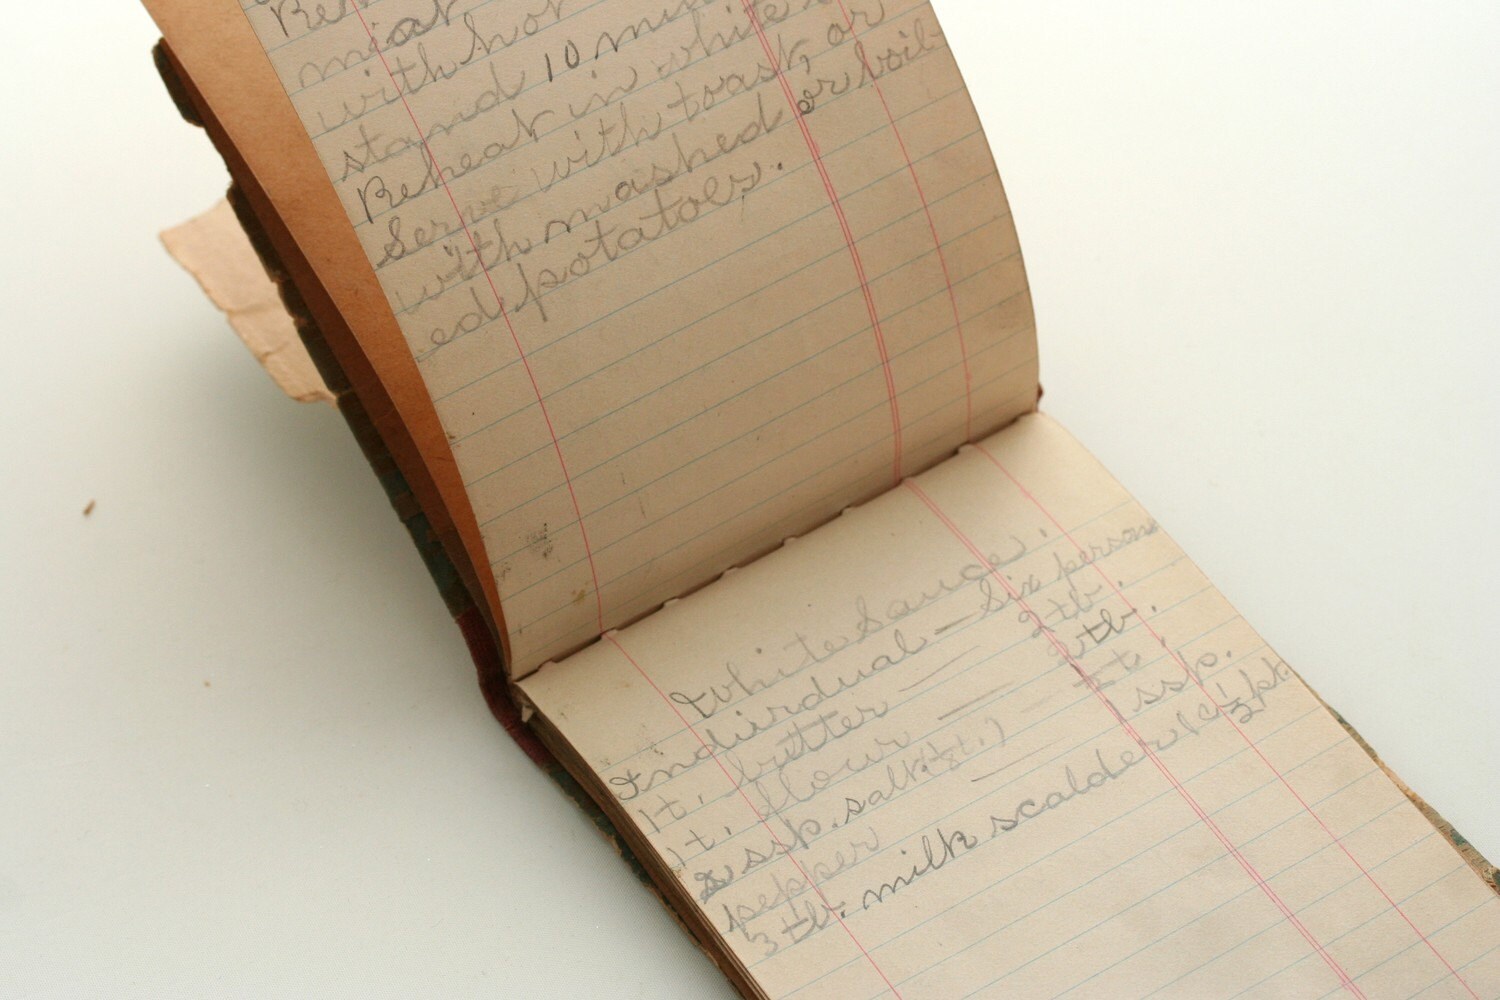 meat
with hot
stand 10 min
Reheat in white
Serve with toast, or
with mashed or boil-
ed potatoes.
White Sauce.
Indiirdual — Six persons
1t. butter — 2 tb.
1t. flour — 2 tb.
2 ssp. salt (1/8t.) — 1/2 t.
pepper — 1 ssp.
3 tb. milk scalded 1 c 1/2 pk